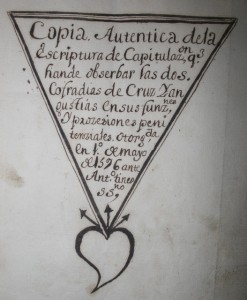 Copia Autentica de la
Escriptura de Capitulaz.on q.e
han de obserbar las dos
Cofradias de Cruz Yan
gustias en sus funz.nes
y prozesiones peni
tenziales. otorg.da
en 1.o de mayo
de 1596 ante
Ant.o
no
ss